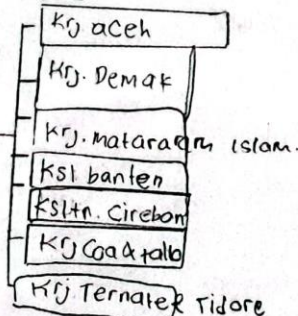 Krj aceh
Krj. Demak
Krj. mataram Islam.
Ksl banten
Ksltn. Cirebon
Krj Goa & tallo
Krj Ternate & Tidore